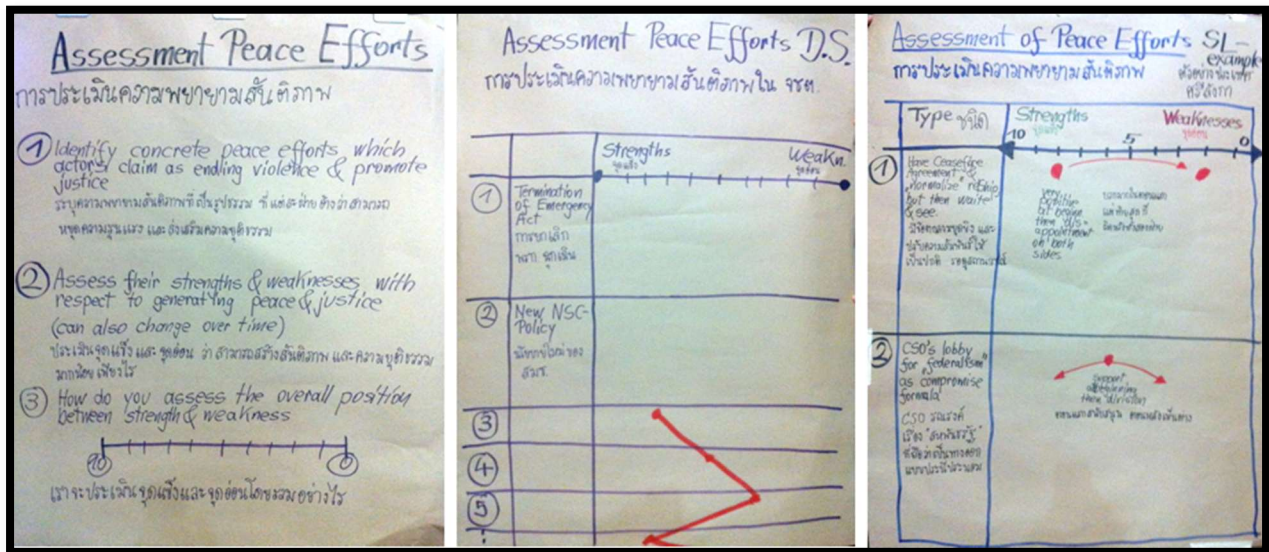 Assessment Peace Efforts
การประเมินความพยายามสันติภาพ
① Identify concrete peace efforts which
actors claim as ending violence & promote
justice
ระบุความพยายามสันติภาพที่เป็นรูปธรรม ที่แต่ละฝ่ายอ้างว่าสามารถ
หยุดความรุนแรง และส่งเสริมความยุติธรรม
② Assess their strengths & weaknesses with
respect to generating peace & justice
(can also change over time)
ประเมินจุดแข็ง และ จุดอ่อน ว่าสามารถสร้างสันติภาพ และความยุติธรรม
มากน้อยเพียงไร
③ How do you assess the overall position
between strength & weakness
10 0
เราจะประเมินจุดแข็งและจุดอ่อนโดยรวมอย่างไร
Assessment Peace Efforts D.S.
การประเมินความพยายามสันติภาพใน จชต.
Strengths Weakn.
จุดแข็ง จุดอ่อน
① Termination
of Emergency
Act
การยกเลิก
พรก. ฉุกเฉิน
② New NSC-
Policy
นโยบายใหม่ของ
สมช.
③
④
⑤
Assessment of Peace Efforts SL-
example
การประเมินความพยายามสันติภาพ
ตัวอย่างประเทศ
ศรีลังกา
Type ชนิด
Strengths Weaknesses
จุดแข็ง จุดอ่อน
10 5 0
① Have Ceasefire
Agreement &
"Normalize" r'ship
but then wait
& see.
ปรับความสัมพันธ์ให้
เป็นปกติ
very
positive
at
then "dis-
appointment
on both
sides
② CSO's lobby
for "federalism"
as compromise
formula
CSO รณรงค์
เรื่อง "สหพันธรัฐ"
แบบประนีประนอม
support
at beginning
then division